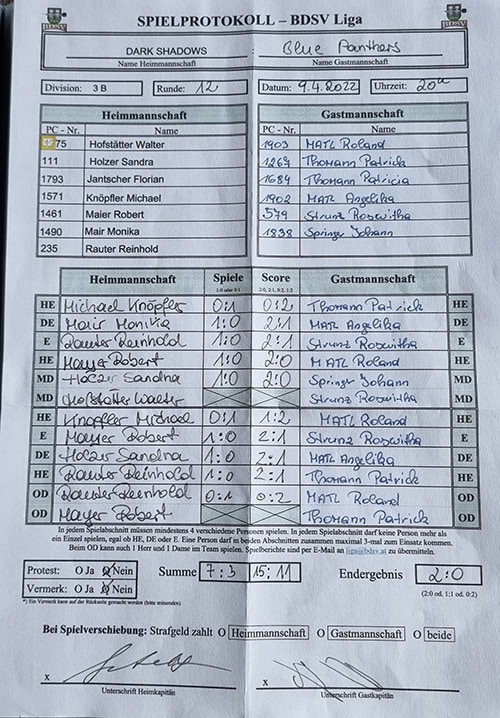 SPIELPROTOKOLL – BDSV Liga
DARK SHADOWS : Blue Panthers
Name Heimmannschaft Name Gastmannschaft
Division: 3 B Runde: 12 Datum: 9.4.2022 Uhrzeit: 20u
Heimmannschaft Gastmannschaft
PC - Nr. Name PC - Nr. Name
75 Hofstätter Walter 1903 MATL Roland
111 Holzer Sandra 1264 Thomann Patrick
1793 Jantscher Florian 1684 Thomann Patricia
1571 Knöpfler Michael 1902 MATL Angelika
1461 Maier Robert 579 Strunz Roswitha
1490 Mair Monika 1838 Springer Johann
235 Rauter Reinhold
Heimmannschaft Spiele Score Gastmannschaft
1:0 oder 0:1 2:0, 2:1, 0:2, 1:2
HE Michael Knöpfler 0:1 0:2 Thomann Patrick HE
DE Mair Monika 1:0 2:1 MATL Angelika DE
E Rauter Reinhold 1:0 2:1 Strunz Roswitha E
HE Mayer Robert 1:0 2:0 MATL Roland HE
MD Holzer Sandra 1:0 2:0 Springer Johann MD
MD Hofstätter Walter Strunz Roswitha MD
HE Knöpfler Michael 0:1 1:2 MATL Roland HE
E Mayer Robert 1:0 2:1 Strunz Roswitha E
DE Holzer Sandra 1:0 2:1 MATL Angelika DE
HE Rauter Reinhold 1:0 2:1 Thomann Patrick HE
OD Rauter Reinhold 0:1 0:2 MATL Roland OD
OD Mayer Robert Thomann Patrick OD
In jedem Spielabschnitt müssen mindestens 4 verschiedene Personen spielen. In jedem Spielabschnitt darf keine Person mehr als
ein Einzel spielen, egal ob HE, DE oder E. Eine Person darf in beiden Abschnitten zusammen maximal 3-mal zum Einsatz kommen.
Beim OD kann auch 1 Herr und 1 Dame im Team spielen. Spielberichte sind per E-Mail an liga@bdsv.at zu übermitteln.
Protest: O Ja O Nein Summe 7:3 15:11 Endergebnis 2:0
Vermerk: O Ja O Nein (2:0 od. 1:1 od. 0:2)
*) Ein Vermerk kann auf der Rückseite gemacht werden (bitte mitsenden)
Bei Spielverschiebung: Strafgeld zahlt O Heimmannschaft O Gastmannschaft O beide
x x
Unterschrift Heimkapitän Unterschrift Gastkapitän